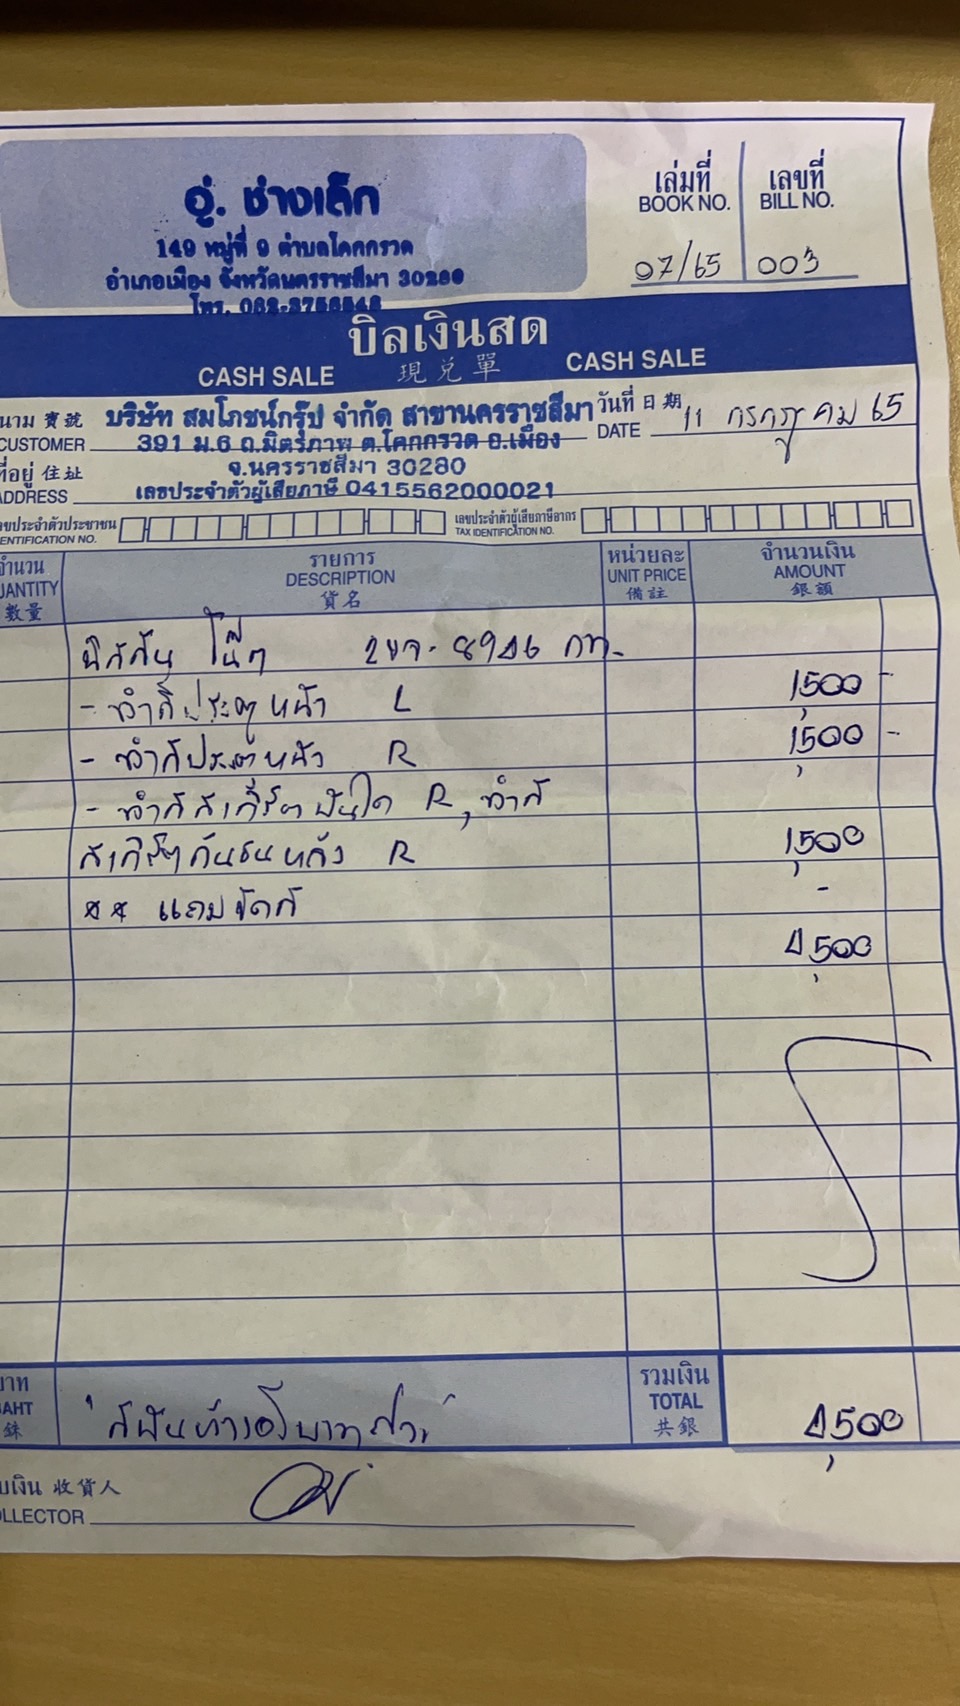 อู่. ช่างเล็ก
149 หมู่ที่ 9 ตำบลโคกกรวด
อำเภอเมือง จังหวัดนครราชสีมา 30280
โทร.
เล่มที่ เลขที่
BOOK NO. BILL NO.
07/65 003
บิลเงินสด
CASH SALE 現兌單 CASH SALE
นาม 寶號 บริษัท สมโภชน์กรุ๊ป จำกัด สาขานครราชสีมา วันที่ 日期 11 กรกฎาคม 65
CUSTOMER 391 ม.6 ถ.มิตรภาพ ต.โคกกรวด อ.เมือง DATE
ที่อยู่ 住址 จ.นครราชสีมา 30280
ADDRESS เลขประจำตัวผู้เสียภาษี 0415562000021
เลขประจำตัวประชาชน เลขประจำตัวผู้เสียภาษีอากร
ENTIFICATION NO. TAX IDENTIFICATION NO.
จำนวน รายการ หน่วยละ จำนวนเงิน
UANTITY DESCRIPTION UNIT PRICE AMOUNT
數量 貨名 備註 銀額
นิสสัน โน๊ต 2ขจ-8946 กท.
- ทำสีประตูหน้า L 1,500 -
- ทำสีประตูหน้า R 1,500 -
- ทำสีสเกิ๊ตบันได R, ทำสี
สเกิ๊ตกันชนหลัง R 1,500
** แถมขัดสี -
4,500
บาท รวมเงิน
BAHT TOTAL
銖 共銀
"สี่พันห้าร้อยบาทถ้วน" 4,500
บเงิน 收貨人
OLLECTOR